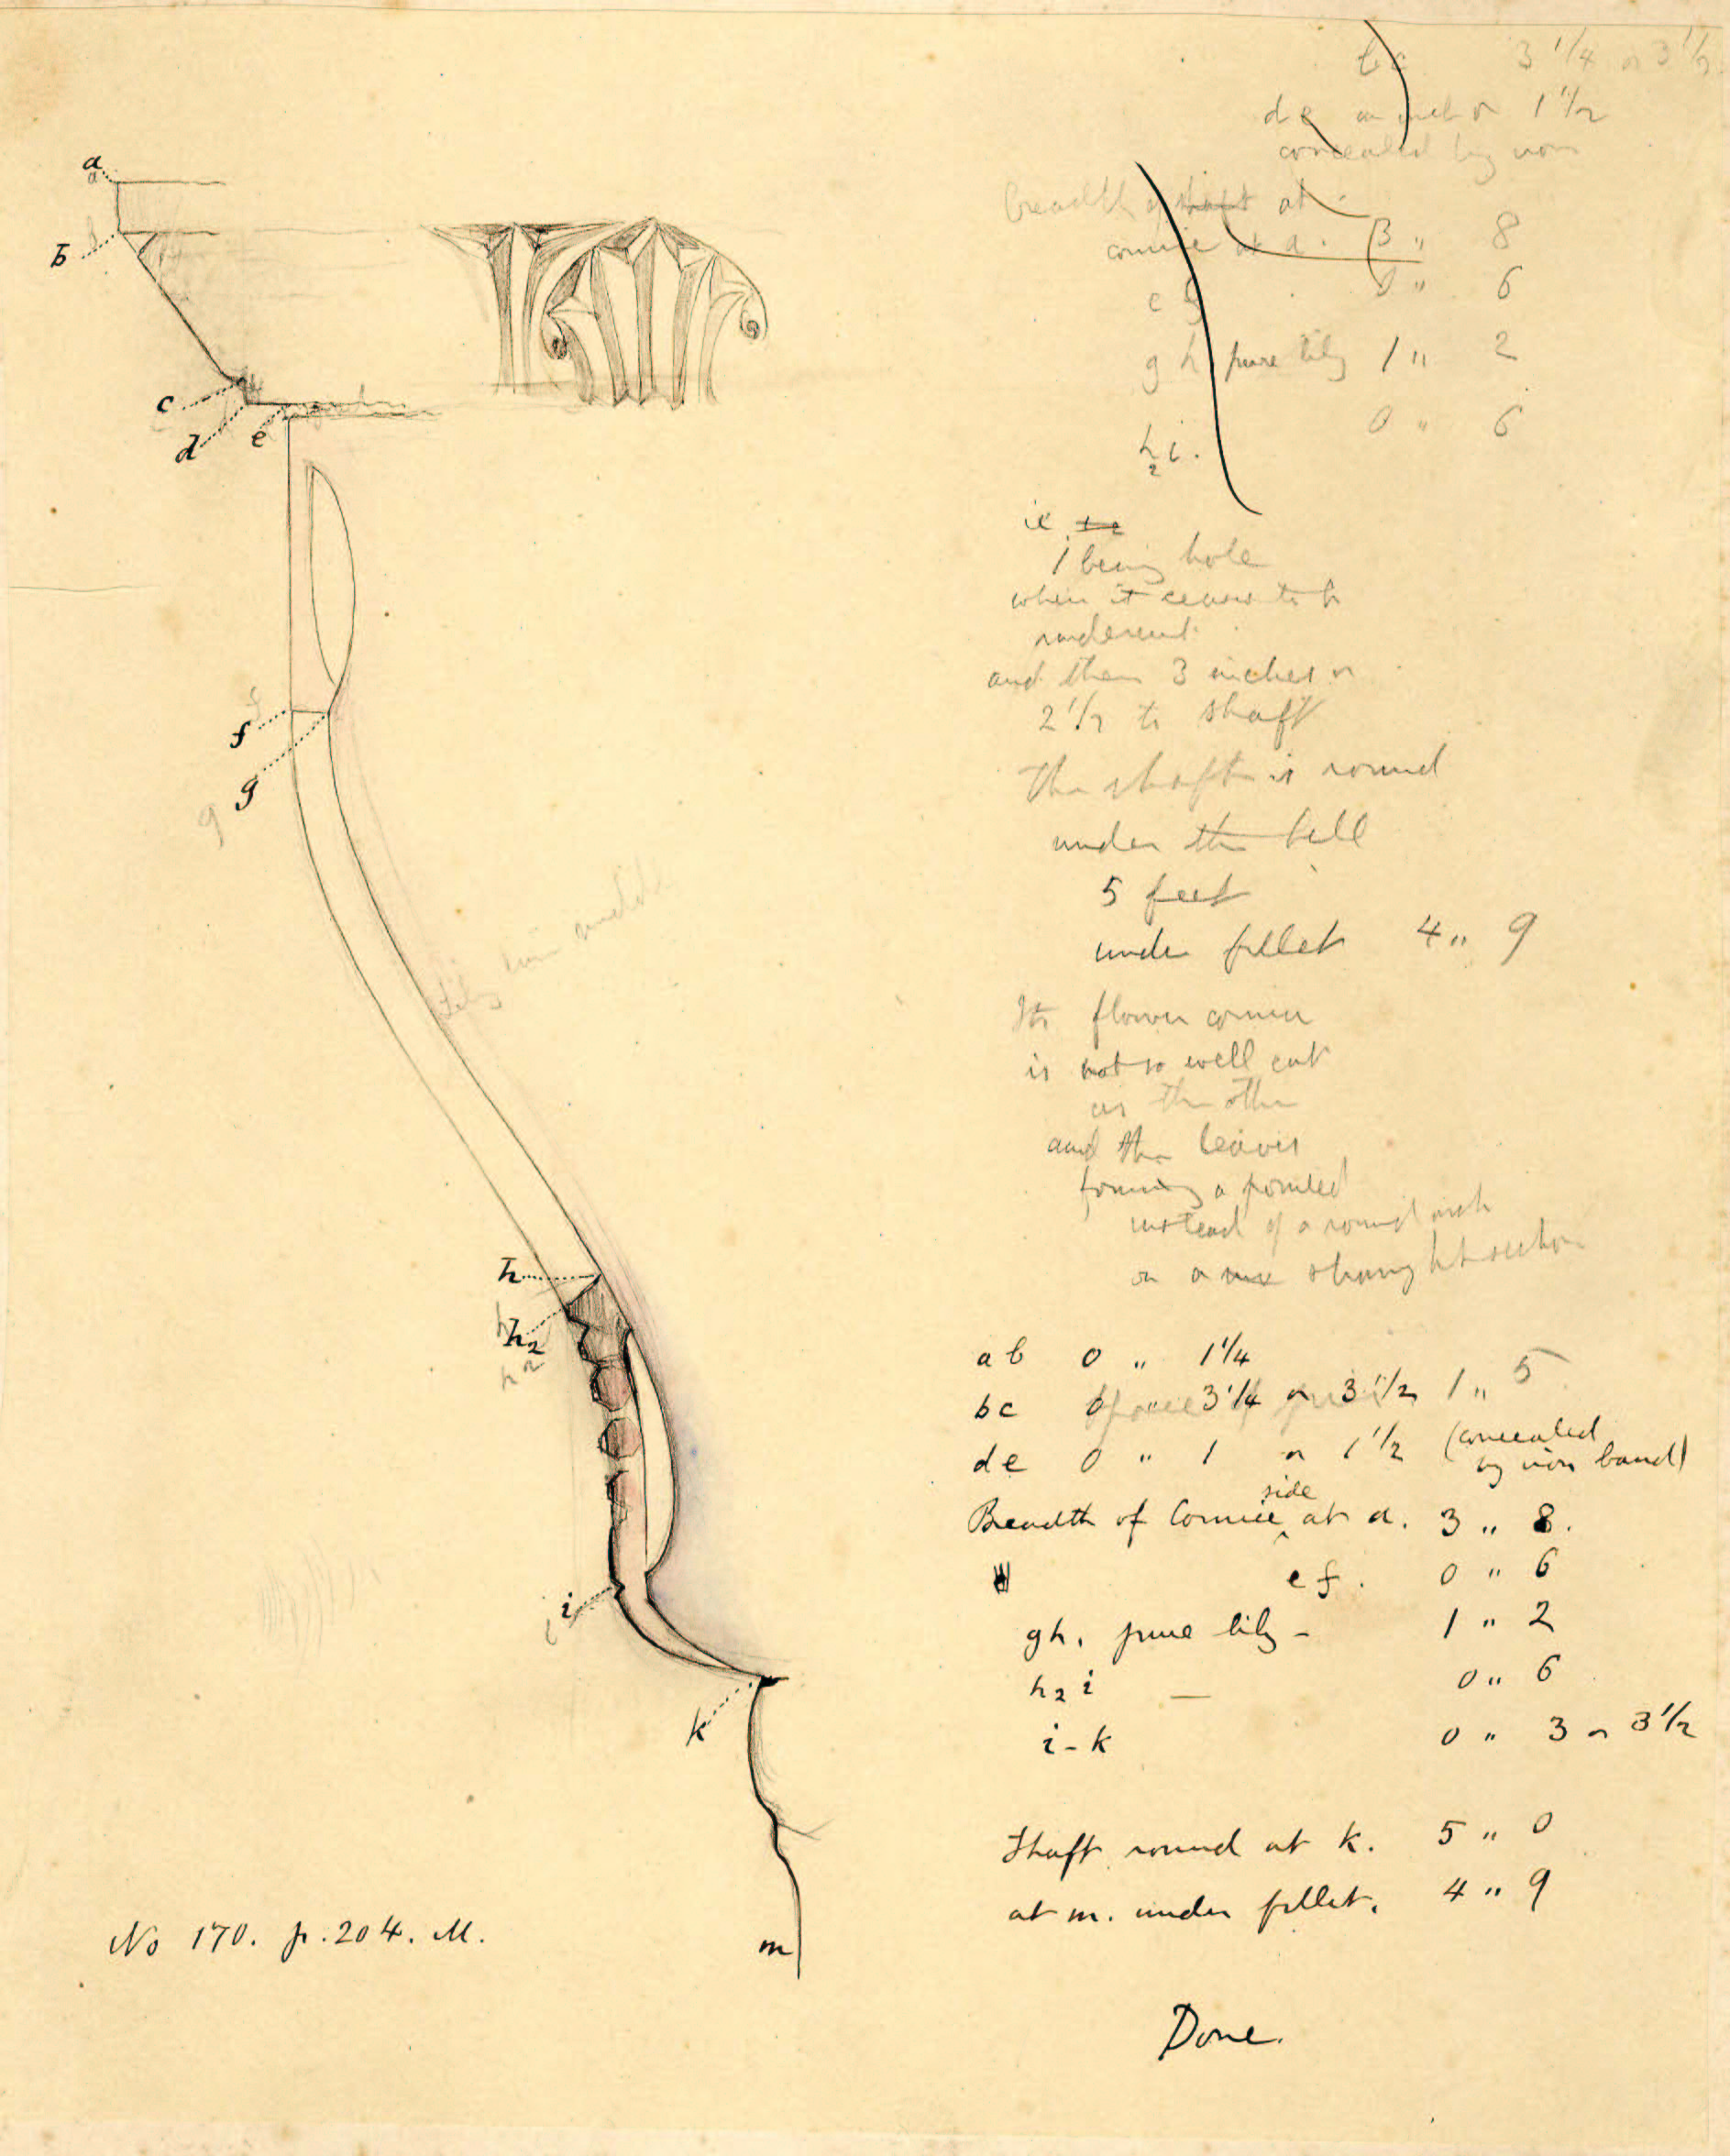 bc 3 1/4 or 3 1/2
de an inch or 1 1/2
concealed by iron
breadth of shaft at
cornice at a. 3 " 8
e f 0 " 6
g h pure lily 1 " 2
h2 i. 0 " 6
ie
1 being hole
when it ceases to be
undercut
and then 3 inches or
2 1/2 to shaft
The shaft is round
under the bell
5 feet
under fillet 4 " 9
Its flower corner
is not so well cut
as the other
and the leaves
forming a pointed
instead of a round arch
on a straight section
ab 0 " 1 1/4
bc 3 1/4 or 3 1/2 1 " 5
de 0 " 1 or 1 1/2 (concealed
by iron band)
Breadth of Cornice side at a. 3 " 8.
ef. 0 " 6
gh. pure lily - 1 " 2
h2 i — 0 " 6
i - k 0 " 3 or 3 1/2
Shaft round at k. 5 " 0
at m. under fillet. 4 " 9
Done.
a
a
b
c
d
e
f
g
g
Lily
h
h2
h2
i
i
k
m
No 170. p. 204. M.